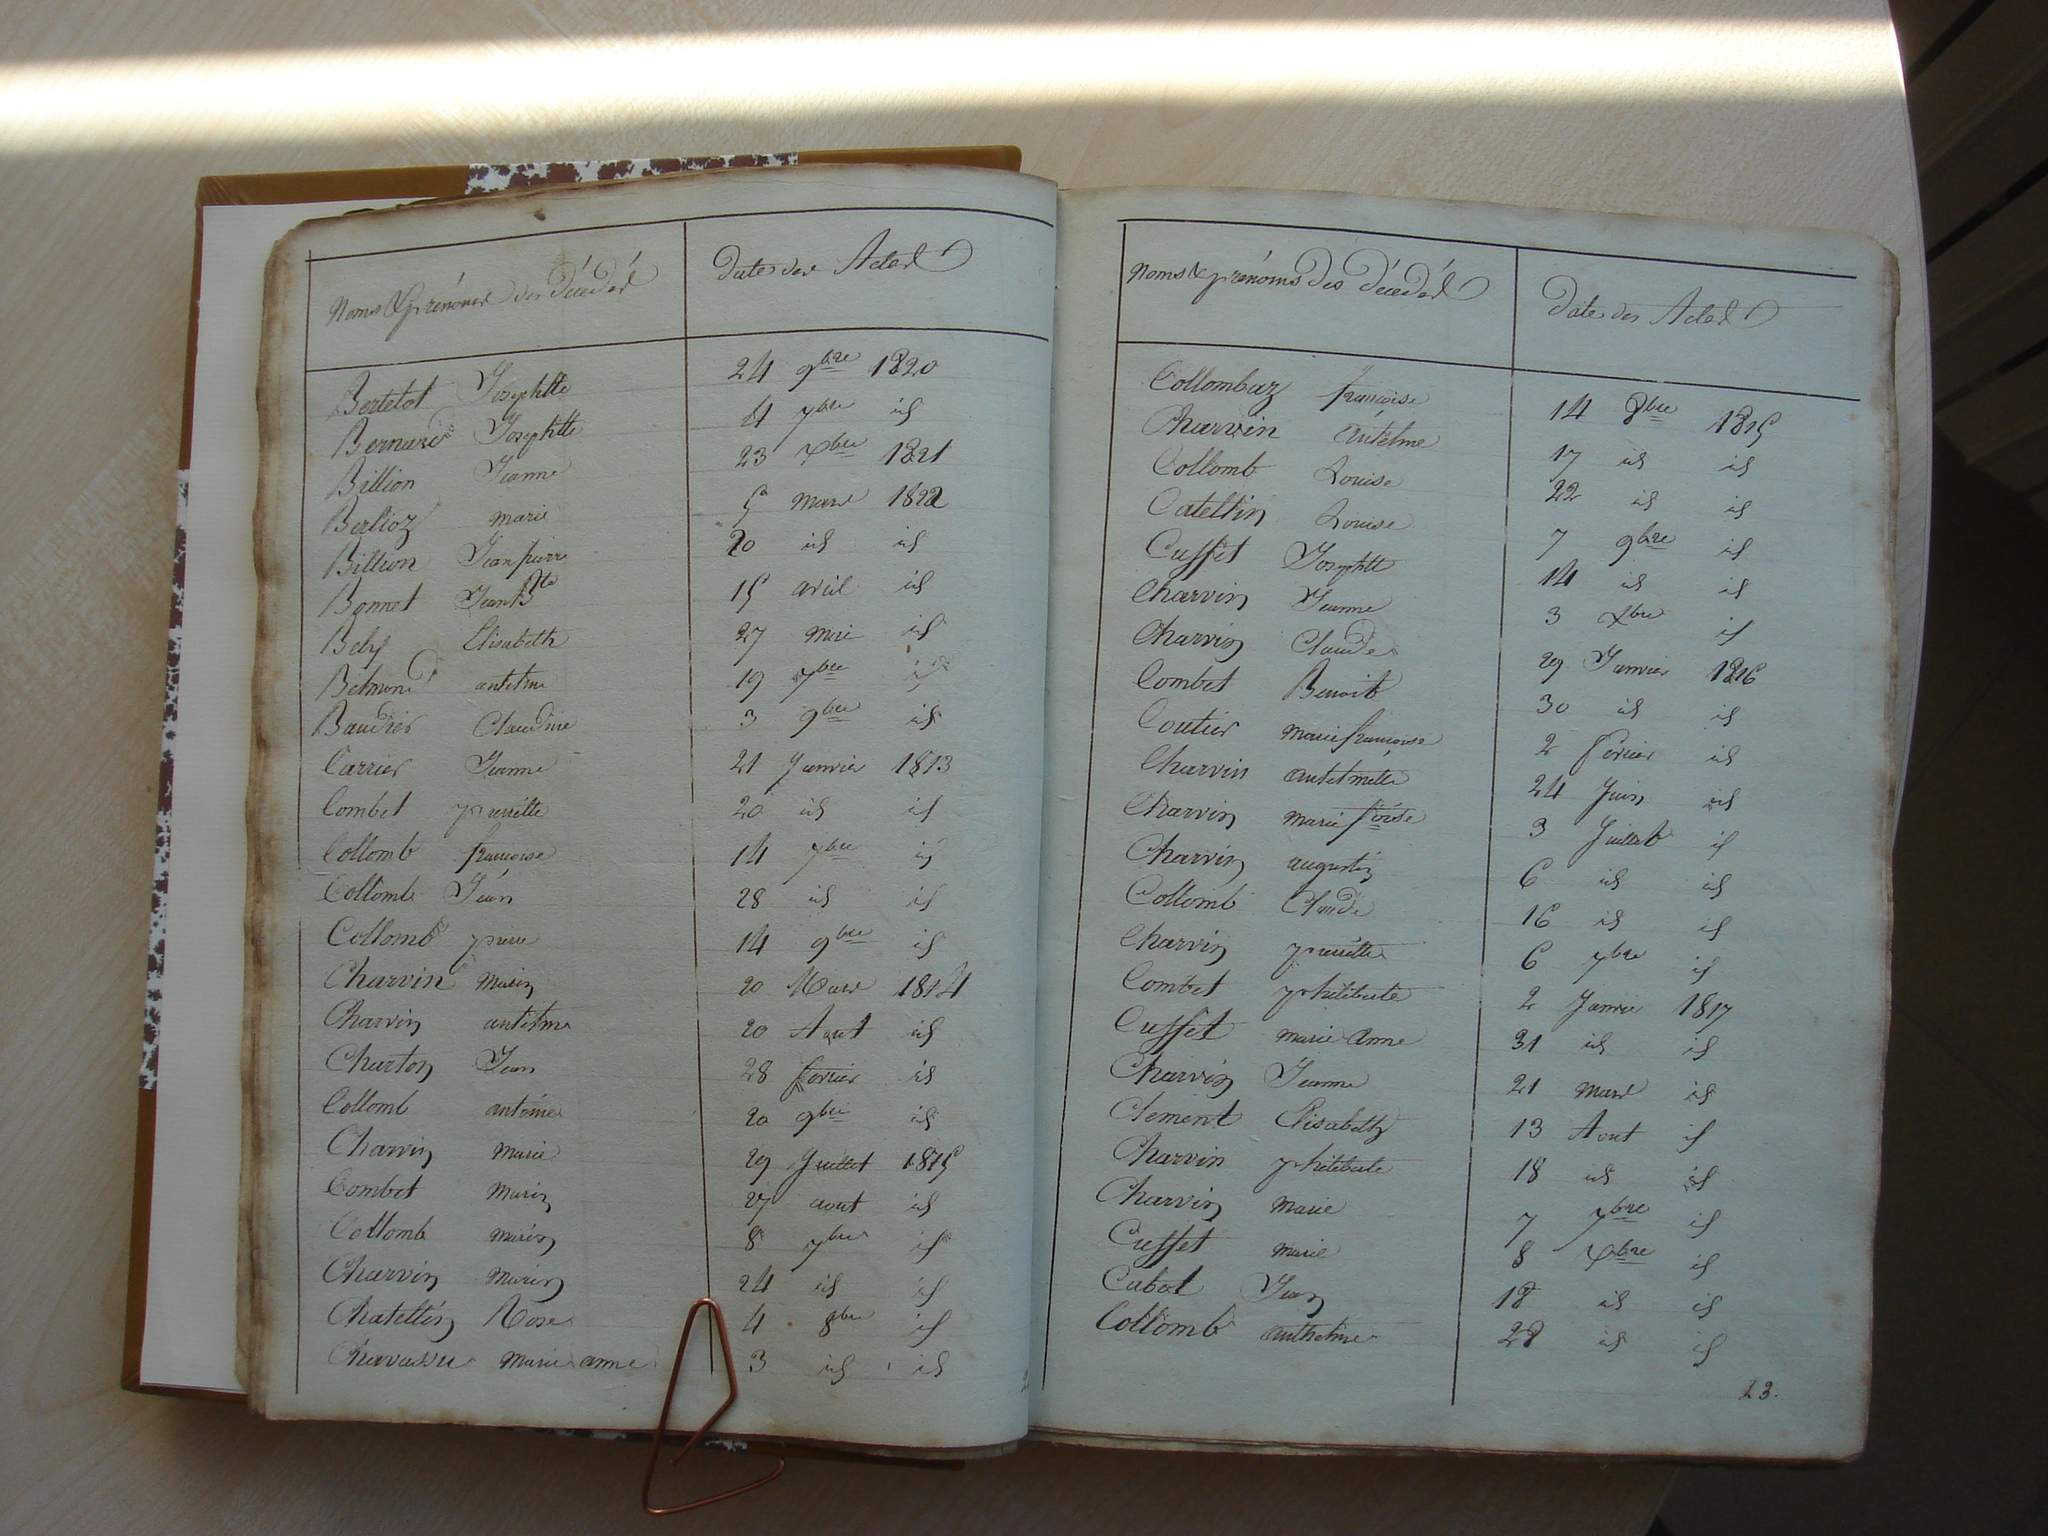 Noms & prénoms des décédés Date des Actes
Bertetot Josephtte 24 9bre 1820
Bernard Josephtte 4 7bre id
Billion Jeanne 23 Xbre 1821
Berlioz marie 5 mars 1822
Billion Jean pierre 20 id id
Bonnet Jean Bte 15 avril id
Bely Elisabeth 27 mai id
Belmond antelme 19 7bre id
Baudier Claudine 3 9bre id
Carrier Jeanne 21 Janvier 1813
Combet pierrette 20 id id
Collomb françoise 14 7bre id
Collomb Jean 28 id id
Collomb pierre 14 9bre id
Charvin Marin 20 Mars 1814
Charvin antelme 20 Aout id
Charton Jean 28 fevrier id
Collomb antoine 20 9bre id
Charvin marie 29 Juillet 1815
Combet Marin 27 aout id
Collomb marin 8 7bre id
Charvin Marin 24 id id
Chatellin Rose 4 8bre id
Chavassu marie anne 3 id id
Noms & prénoms des décédés Date des Actes
Collombaz françoise 14 8bre 1815
Charvin antelme 17 id id
Collomb Louise 22 id id
Catellin Louise 7 9bre id
Cusset Josephtte 14 id id
Charvin Jeanne 3 Xbre id
Charvin Claude 29 Janvier 1816
Combet Benoit 30 id id
Coutier marie françoise 2 fevrier id
Charvin antelmette 24 Juin id
Charvin marie 3 Juillet id
Charvin augustin 6 id id
Collomb Claude 16 id id
Charvin pierrette 6 7bre id
Combet philiberte 2 Janvier 1817
Cusset marie anne 31 id id
Charvin Jeanne 21 mars id
Clement Elisabeth 13 Aout id
Charvin philiberte 18 id id
Charvin marie 7 7bre id
Cusset marie 8 Xbre id
Cabot Jean 18 id id
Collomb anthelme 28 id id
23.